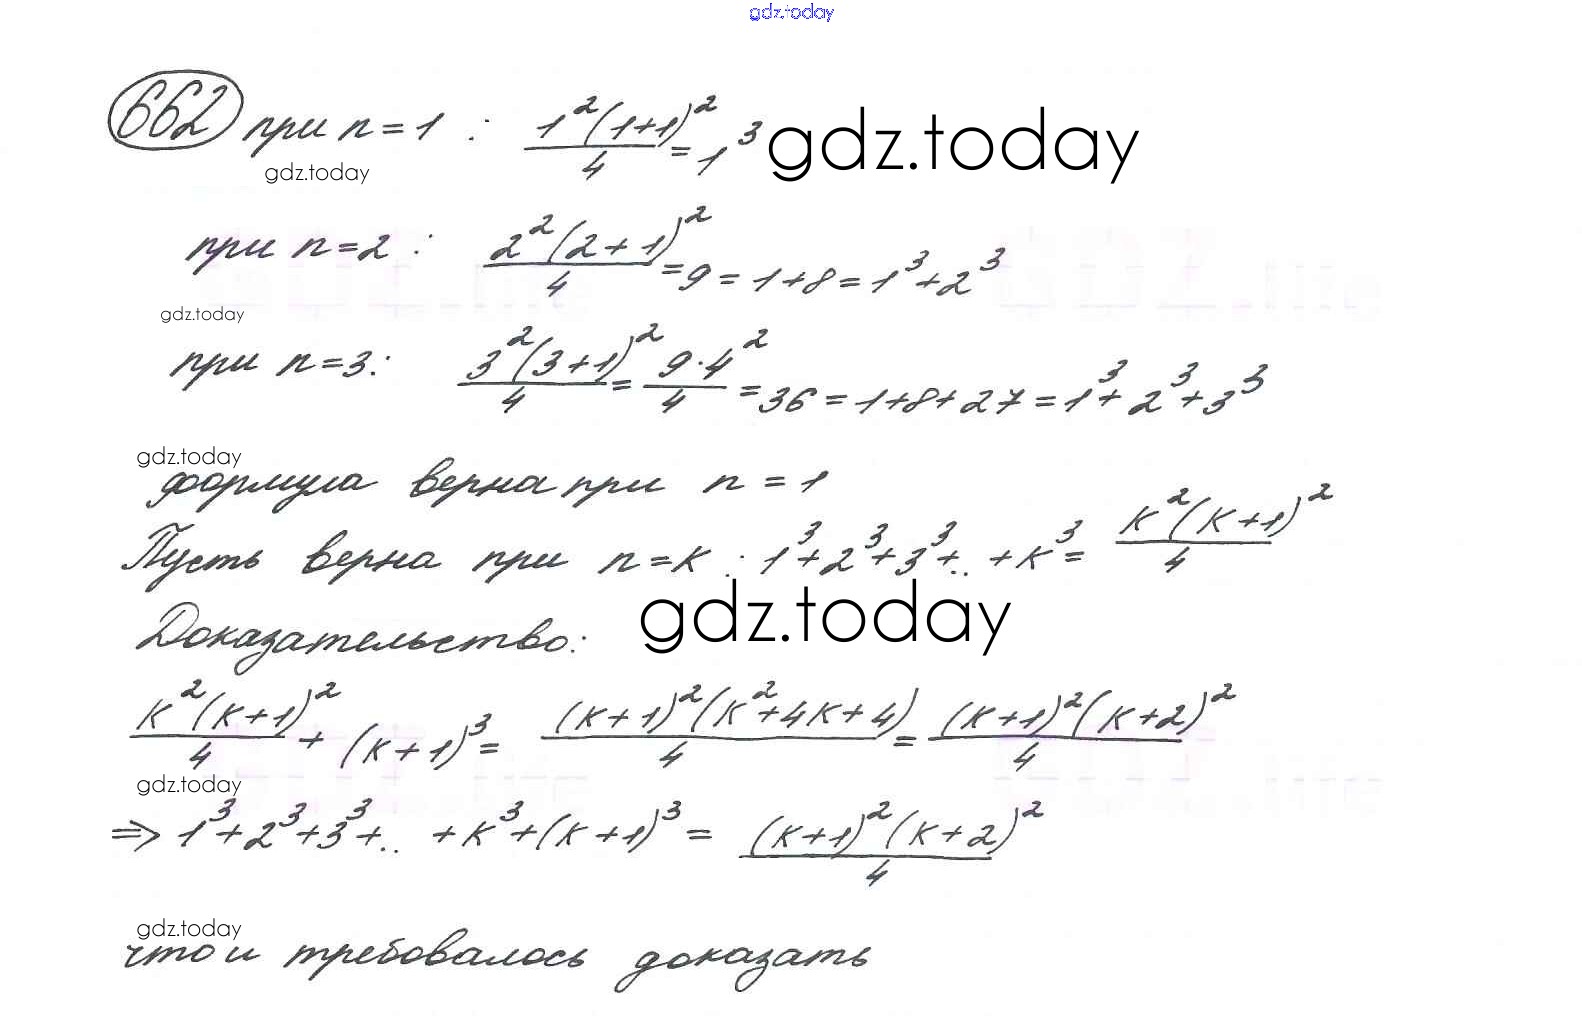 gdz.today
662 при n=1 : 1²(1+1)²/4 = 1³ gdz.today
gdz.today
при n=2 : 2²(2+1)²/4 = 9 = 1+8 = 1³+2³
gdz.today
при n=3: 3²(3+1)²/4 = 9·4²/4 = 36 = 1+8+27 = 1³+2³+3³
gdz.today
формула верна при n = 1
Пусть верна при n=k : 1³+2³+3³+.. +k³ = k²(k+1)²/4
gdz.today
Доказательство:
k²(k+1)²/4 + (k+1)³ = (k+1)²(k²+4k+4)/4 = (k+1)²(k+2)²/4
gdz.today
⇒ 1³+2³+3³+.. +k³+(k+1)³ = (k+1)²(k+2)²/4
gdz.today
что и требовалось доказать